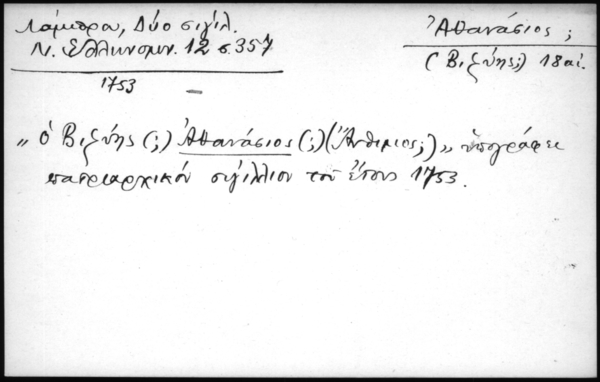 Λάμπρου, Δύο σιγίλ.
Ν. Ἑλληνομν. 12 σ. 357
1753
Ἀθανάσιος ;
(Βιζύης;) 18 αἰ.
„ὁ Βιζύης (;) Ἀθανάσιος (;) (Ἄνθιμος;)„ ὑπογράφει
πατριαρχικόν σιγίλλιον τοῦ ἔτους 1753.